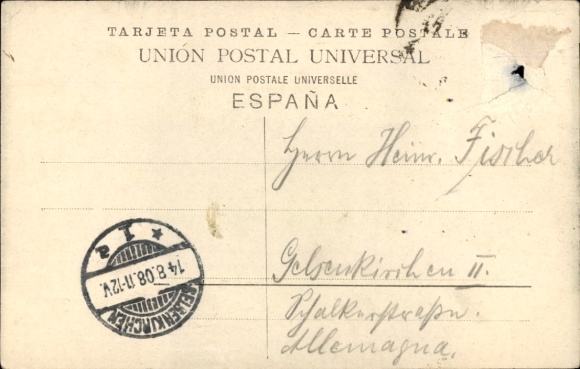 TARJETA POSTAL — CARTE POSTALE
UNIÓN POSTAL UNIVERSAL
UNION POSTALE UNIVERSELLE
ESPAÑA
Herrn Heinr. Fischer
Gelsenkirchen II.
Schalkerstraße.
Allemagna.
* 1 a
14.8.08.11-12V.
GELSENKIRCHEN